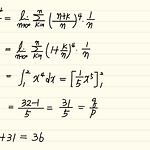 = lim n→∞ Σ k=1 n (n+k/n)^4 · 1/n
= lim n→∞ Σ k=1 n (1+k/n)^4 · 1/n
= ∫₁² x⁴ dx = [1/5 x⁵]₁²
= 32-1/5 = 31/5 = q/p
+31 = 36